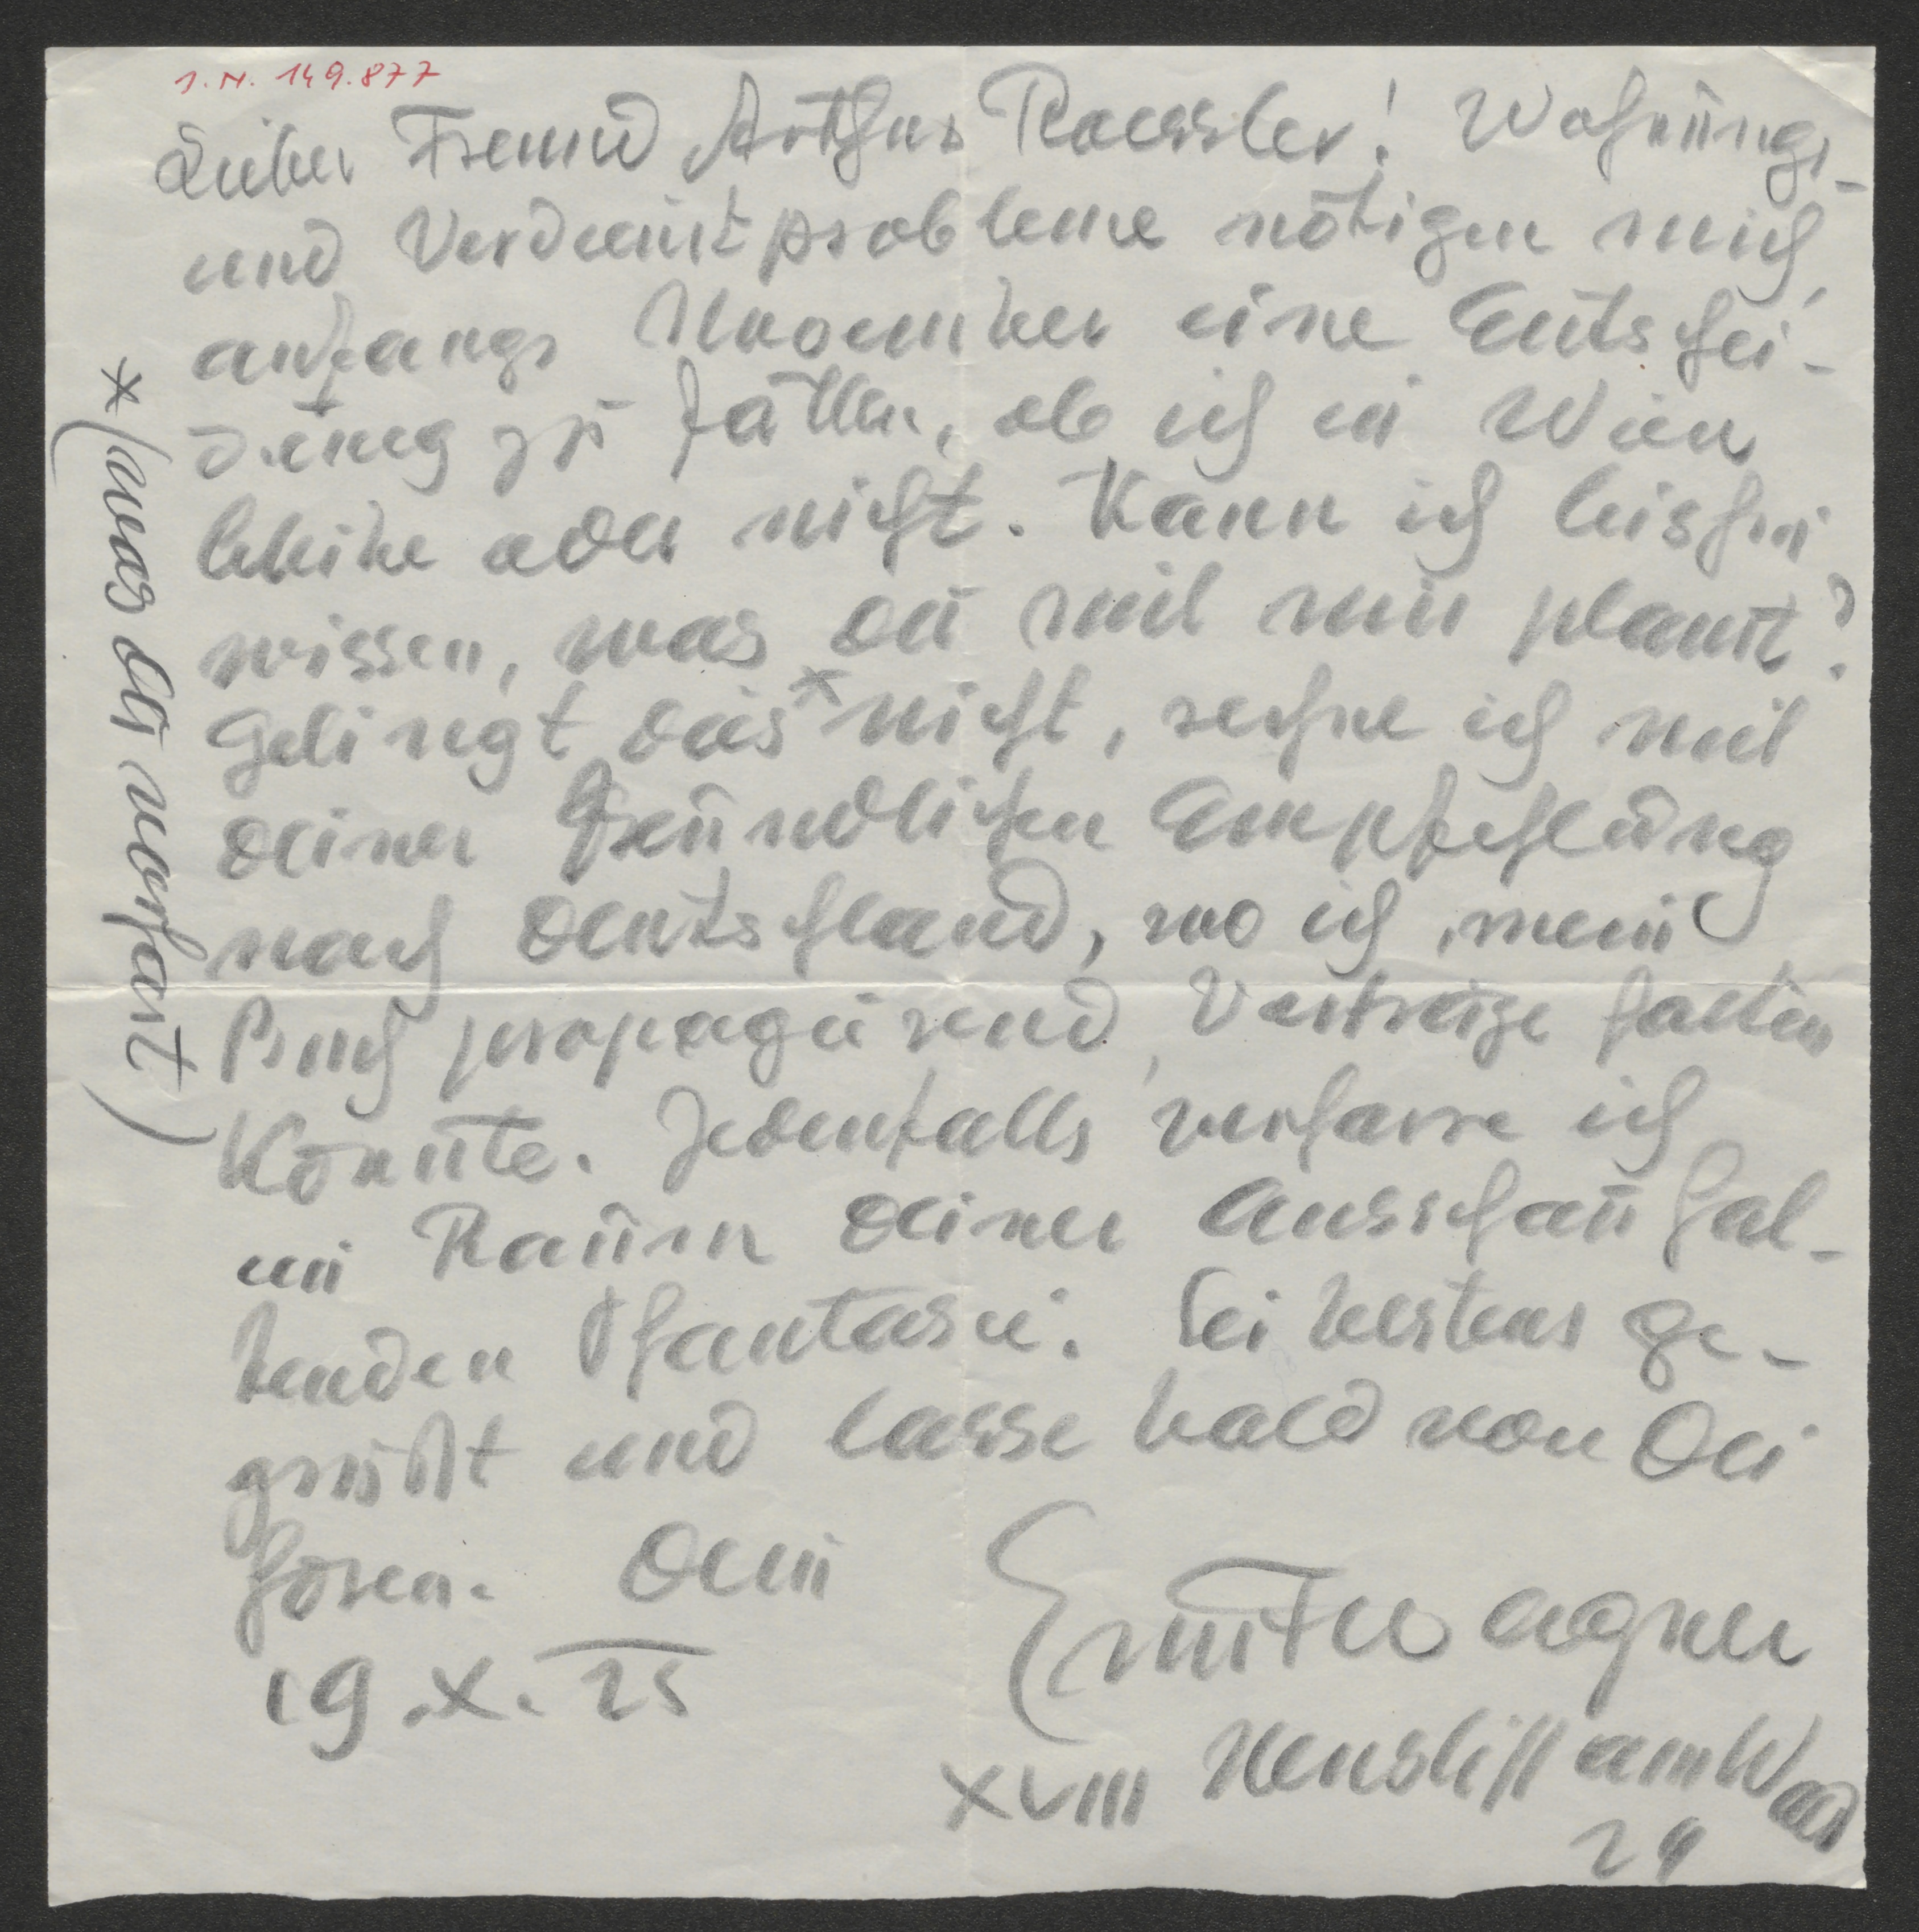 I.N. 149.877
Lieber Freund Arthur Roessler! Wohnungs-
und Verdienstprobleme nötigen mich,
anfangs November eine Entschei-
dung zu fällen, ob ich in Wien
bleibe oder nicht. Kann ich bis hin
wissen, was du mit mir planst?
Gelingt dies * nicht, rechne ich mit
deiner freundlichen Empfehlung
nach Deutschland, wo ich, mein
Buch propagierend, Vorträge halten
könnte. Jedenfalls verharre ich
im Raum deiner Ausschau hal-
tenden Phantasie. Sei bestens ge-
grüßt und lasse bald von Dir
hören. Dein
Ernst Wagner
19.X.25
XVIII Neustift am Wald
24
*(was du vorhast)